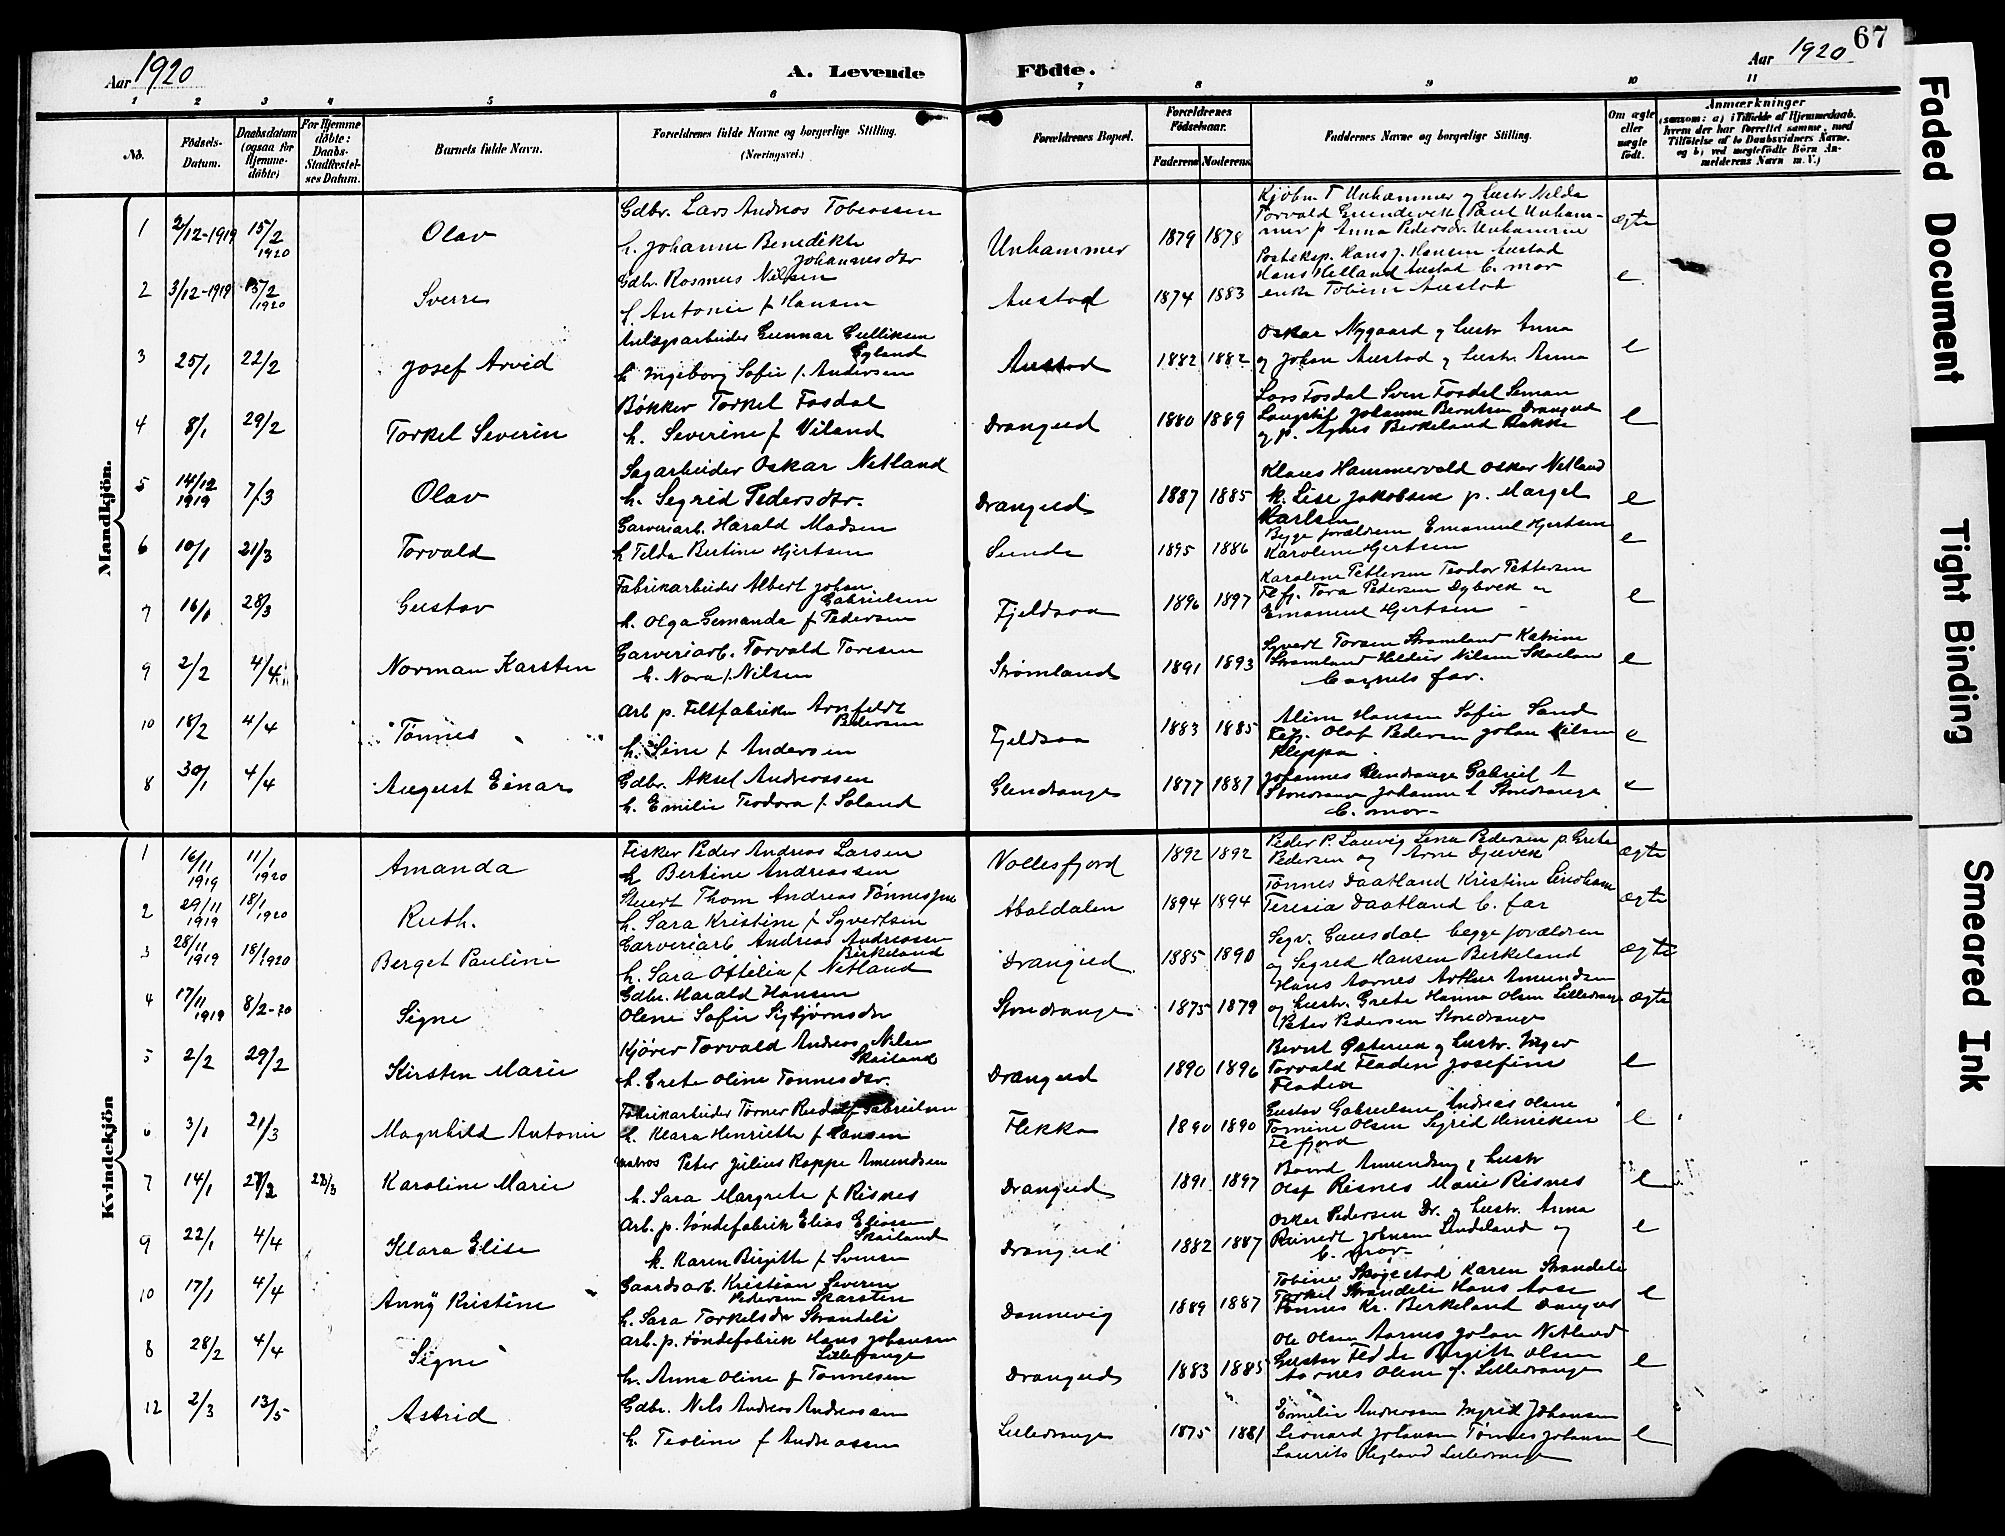 67
Aar 1920
A. Levende Födte.
Aar 1920
1 2 3 4 5 6 7 8 9 10 11
No.
Födsels-Datum.
Daabsdatum (ogsaa for Hjemmedöbte)
For Hjemmedöbte: Daabs-Stadfæstelses Datum.
Barnets fulde Navn.
Forældrenes fulde Navne og borgerlige Stilling.
(Næringsvei.)
Forældrenes Bopæl.
Forældrenes Födselsaar.
Faderens Moderens
Faddernes Navne og borgerlige Stilling.
Om ægte eller uægte födt.
Anmærkninger
(saasom: a) i Tilfælde af Hjemmedaab, hvem der har forrettet samme, med Tilföielse af to Daabsvidners Navne. og b) ved uægtefödte Börn Anmelderens Navn m. V.)
Mandkjön.
1 2/12-1919 15/2 1920 Olav
Gdbr. Lars Andreas Tobiassen
h. Johanne Benedikte Johannesdtr
Unhammer 1879 1878
Torvald Paul Unhammer p Anna Pedersdr. Unhammer
ægte
2 3/12-1919 15/2 1920 Sverre
Gdbr. Rasmus Nilsen
h. Antonie f Hansen
Austad 1874 1883
Hans J. Hansen Austad
Hans Helland Austad B. mor
enke Tobine Austad
e
3 25/1 22/2 Josef Arvid
Anlægsarbeider Gunnar Gulliksen Egland
h Ingeborg Sofie f. Andersen
Austad 1882 1882
Oskar Nygaard g hustr Anna
og Johan Austad g hustr. Anna
e
4 8/1 29/2 Torkel Severin
Bøkker Torkel Fosdal
h. Severine f Viland
Drangeid 1880 1889
Lars Fosdal Sven Fosdal
Johanne Berntsen Drangeid
og p. Agnes Birkeland Bakke
e
5 14/12 1919 7/3 Olav
Sagarbeider Oskar Netland
h. Segrid Pedersdtr.
Drangeid 1887 1885
Klaus Hammervold Oskar Netland
k. Lise Jakobsen p. Margel
Karlsen
e
6 10/1 21/3 Torvald
Garveriarb. Harald Madsen
h Tilda Bertine Hjertsen
Sunde 1895 1886
Begge forældrene Emanuel Gjertsen
Karoline Gjertsen
e
7 16/1 28/3 Gustav
Fabrikarbeider Albert Johan Gabrielsen
h. Olga Gemanda f Pedersen
Fjeldsaa 1896 1897
Karoline Pettersen Teodor Pettersen
Flefj. Tora Pedersen Dybvik
Emanuel Gjertsen
e
9 2/2 4/4 Norman Karsten
Garveriarb. Torvald Toresen
h. Nora f. Nilsen
Strømland 1891 1893
Syvert Torsen Strømland Katrine
Strømland Nilsen
Barnets far.
e
10 18/2 4/4 Tønnes
Arb p. Filtfabriken Arnfeldt Pedersen
h. Sine f Andersen
Fjeldsaa 1883 1885
Aline Hansen Sofie Sand
Olaf Pedersen Johan Nilsen
Kleppa
e
8 30/1 4/4 August Einar
Gdbr. Aksel Andreassen
h. Emilie Teodora f. Soland
Glendrange 1877 1887
Johannes Glendrange Gabriel A
Storedrange Johanne Storedrange
B. mor
e
Kvindekjön
1 16/11 1919 11/1 1920 Amanda
Fisker Peder Andreas Larsen
h Bertine Andreassen
Vollesfjord 1892 1892
Peder P. Lauvig Lena Pedersen p. Grete
Pedersen og Arne Djuvik
ægte
2 29/11 1919 18/1 1920 Ruth.
Stuert Thom Andreas Tønnessen
h. Sara Kristine f Syvertsen
Abaldalen 1894 1894
Tønnes Daatland Kristine
Teresia Daatland B. far
ægte
3 28/11 1919 18/1 1920 Berget Pauline
Garveriarb Andreas Andreassen Birkeland
h. Sara Ottilia f Netland
Drangeid 1885 1890
Sigv. Gausdal begge forældren
og Segred Hansen Birkeland
ægte
4 17/11 1919 8/2-20 Signe
Gdbr. Harald Hansen
Olene Sofie Sigbjørnsdtr
Storedrange 1875 1879
Hans Aarnes Arthur Amundsen
og hustr. Grete Hanna Olsen Lilledrange
Peter Pedersen Storedrange
ægte
5 2/2 29/2 Kirsten Marie
Kjører Torvald Andreas Nilsen Skailand
h. Grete Oline Tønnesdtr.
Drangeid 1890 1896
Bernt Østerud g hustr. Inger
Torvald Fladen Josefine
Fladen
e
6 3/1 21/3 Magnhild Antonie
Fabrikarbeider Tørner Rudolf Gabrielsen
h. Klara Henriette f Hansen
Flekka 1890 1890
Gustav Gabrielsen Andreas Olsen
Tomine Olsen Sigrid Henriksen
Flefjord
e
7 14/1 27/2 28/3 Karoline Marie
Matros Peter Julius Roppe Amundsen
h. Sara Margrete f Risnes
Drangeid 1891 1897
Amundsen g hustr
Olaf Risnes Marie Risnes
e
9 22/1 4/4 Klara Elise
Arb. p. tøndefabrik Elias Eliassen Skailand
h. Karen Birgitte f Svensen
Drangeid 1882 1887
Oskar Pedersen Dr. g hustr. Anna
Reinert Johnsen Lindeland og
B. mor
e
10 17/1 4/4 Anny Kristine
Gaardsarb. Kristian Severin Pedersen Skarsten
h. Sara Torkelsdtr Strandeli
Dannevig 1889 1887
Tobine Skogestad Karen Strandeli
Torkel Strandeli Hans Aase
Tønnes Kr. Birkeland Dangeid
e
8 28/2 4/4 Signe
Arb. p. tøndefabrik Hans Johansen Lilledrange
h. Anna Oline f Tønnesen
Drangeid 1883 1885
Ole Olsen Aarnes Johan Netland
Gustav Birgitte Olsen
Aarnes Oline g. Lilledrange
e
12 2/3 13/5 Astrid
Gdbr. Nils Andreas Andreassen
h. Teoline f Andreassen
Lilledrange 1875 1881
Emilie Andreassen Ingrid Johansen
Leonard Johansen Tønnes Johansen
Laurits Lilledrange
e
Faded Document
Tight Binding
Smeared Ink